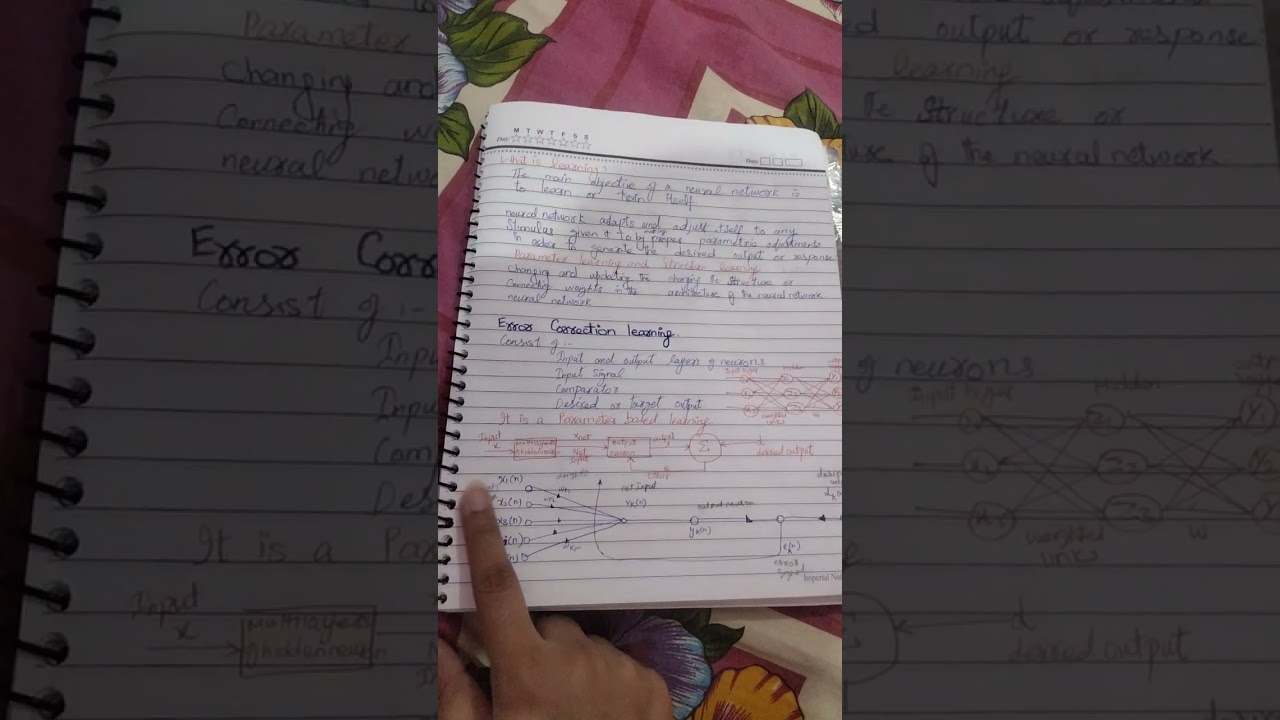 M T W T F S S
Date
What is learning?
The main objective of a neural network is
to learn or train itself
neural network adapts and adjust itself to any
Stimulus given it to by proper parametric adjustments
in order to generate the desired output or response
Parameter learning and Structure learning
Changing and updating the changing the structure or
Connecting weights in the architecture of the neural network
neural network
Error Correction learning
Consist of :-
Input and output layers of neurons
Input Signal
Comparator
Desired or target output
It is a Parameter based learning
Input layer
Hidden
weighted links
W
Input
x
Multilayers
of hidden neuron
Net Input
output neuron
output
Σ
d
desired output
error
x1(n)
x2(n)
x3(n)
net Input
vk(n)
output neuron
yk(n)
ek(n)
error
signal